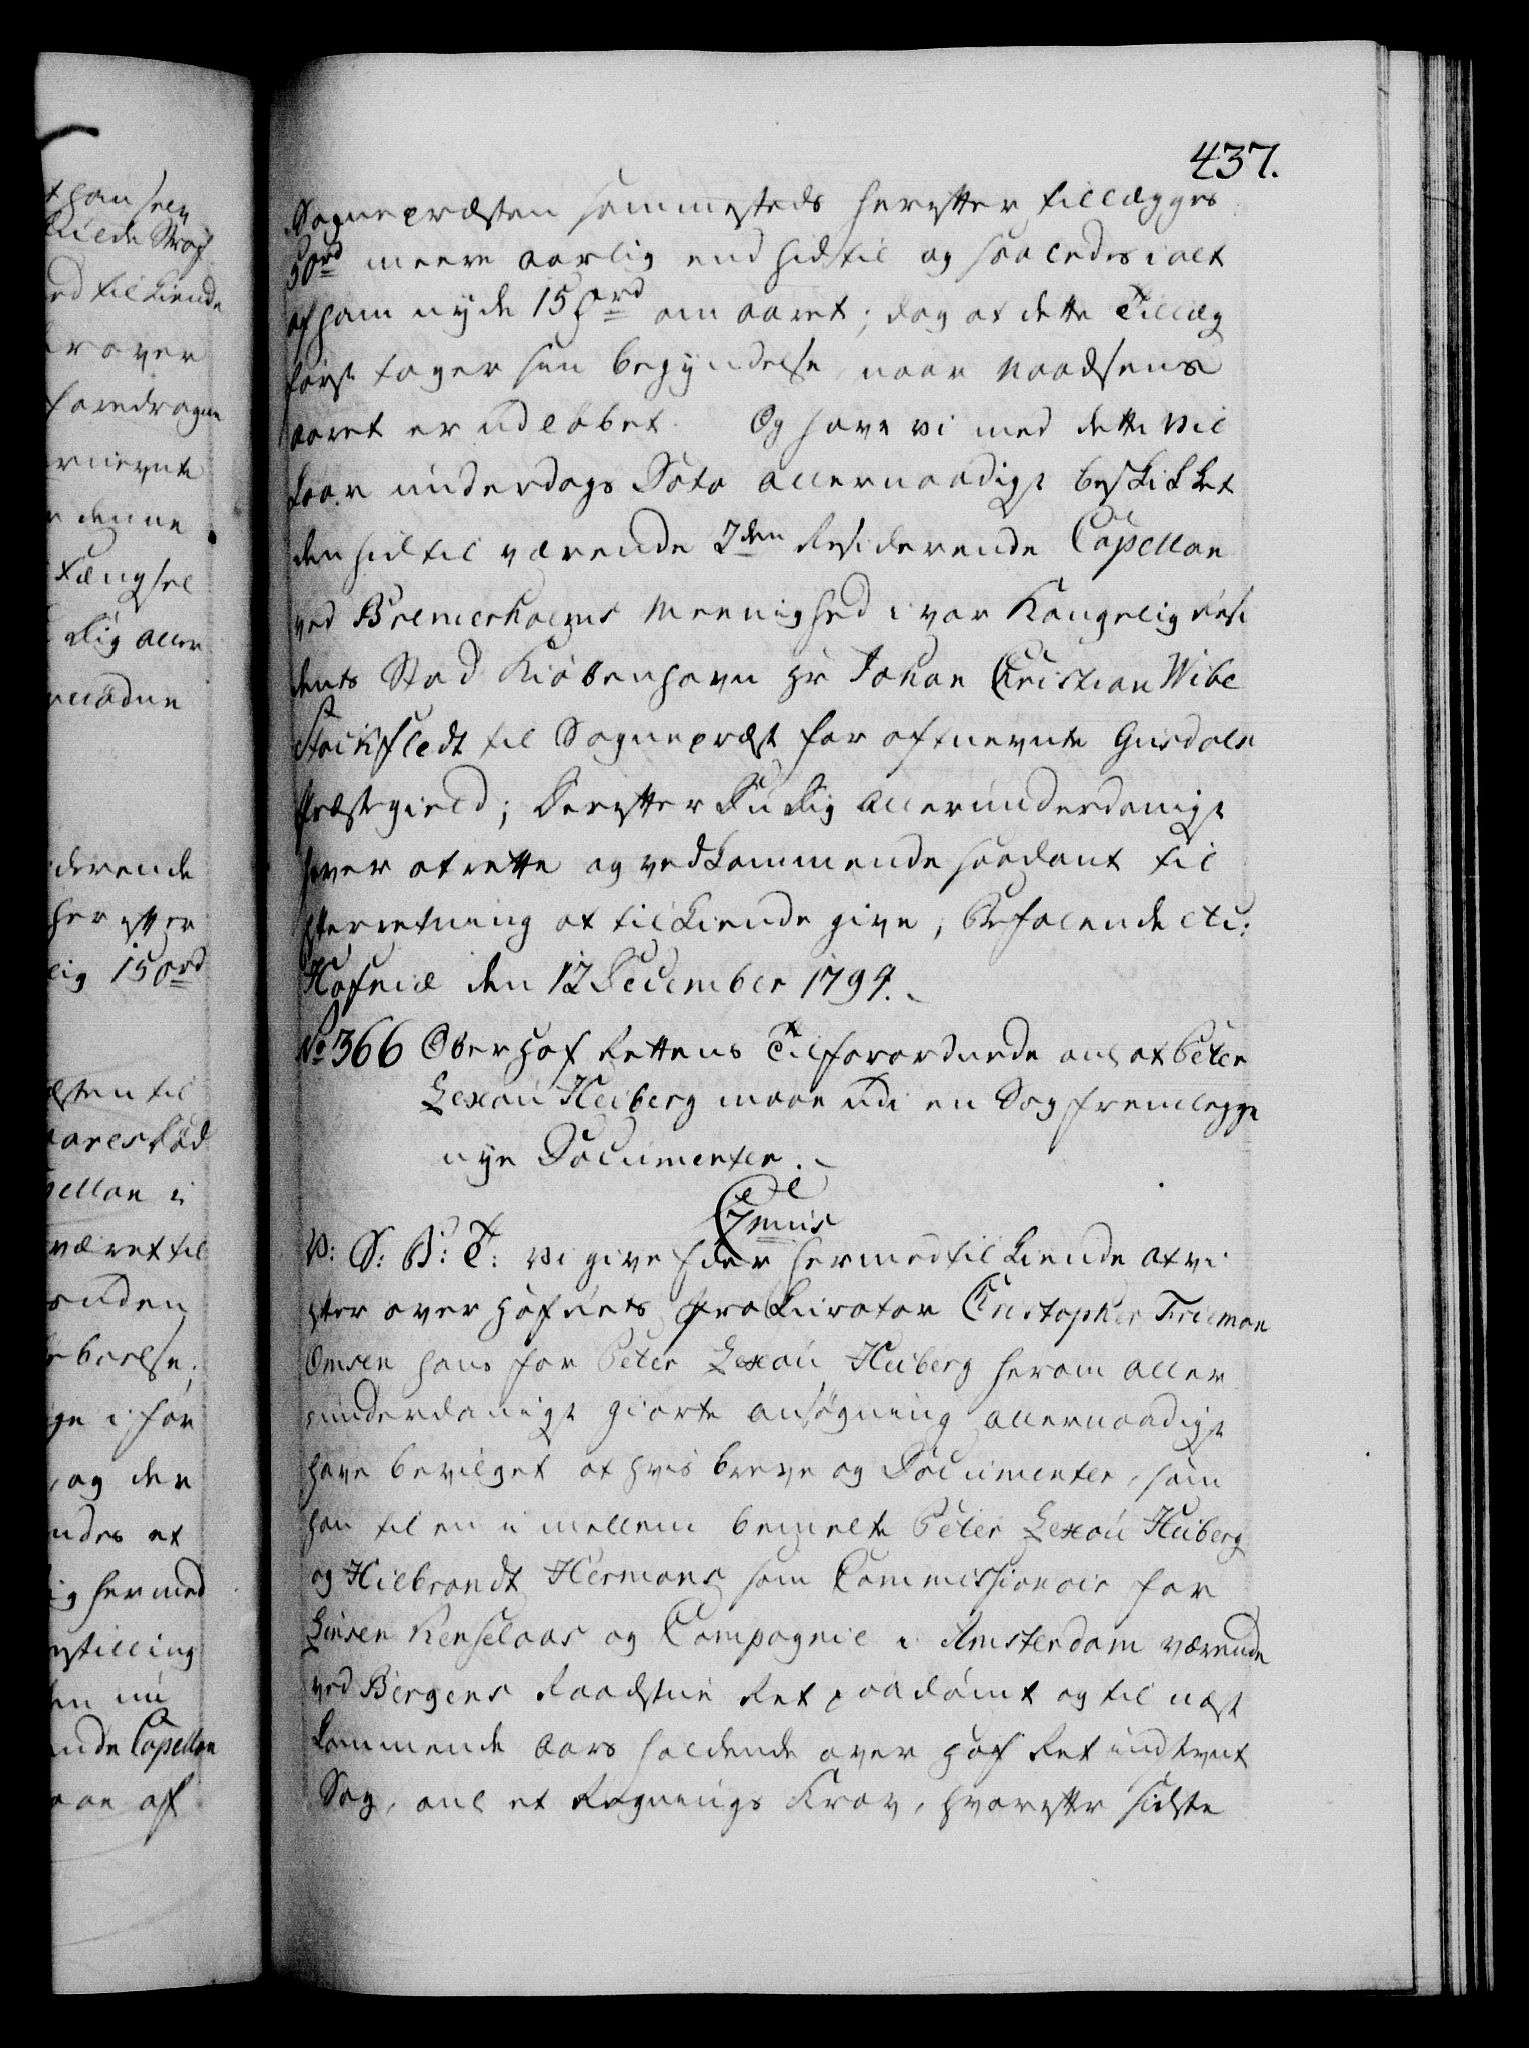 437.
Sognepræsten sammesteds herefter tillægges
50rd meere aarlig end hidtil og saaledes i alt
af ham nyde 150rd om aaret; dog at dette Tillæg
først tager sin begyndelse naar Naadsens
aaret er udløbet. Og have vi med dette Vil
kaar underdags Dato allernaadigst beskikket
den hidtil værende 2den Residerende Capellan
ved Bremerholms Meenighed i vor Kongelig Resi
dents Stad Kiøbenhavn Hr Johan Christian Wibe
Stockfledt til Sognepræst for oftnevnte Gusdals
Præstegield; Derefter Du Dig allerunderdanigst
haver at rette og vedkommende saadant til
efterretning at tilkiende give, Befalende etc:
Hafniæ den 12 December 1794.
No 366 Over Hof Rettens Tilforordnede anl at Peter
Lexau Heiberg maae udi en Sag fremlegge
nye Documenter.
C 7mus
V: S: G: T: Vi give Eder hermed tilkiende at vi
efter over Hofrets Prokurator Christopher Frieman
Omsen hans for Peter Lexau Heiberg herom aller
underdanigst giorte ansøgning allernaadigst
have bevilget at hvis breve og Documenter, som
han til en imellem bemelte Peter Lexau Heiberg
og Hilbrandt Hermans som Commissionair for
Linsen Kenselaas og Compagnie i Amsterdam værende
ved Bergens Raadstue Ret paadømt og til næst
kommende Aars holdende over Hof Ret indstevnt
Sag, anl et Regnings Krav, hvorefter sidste